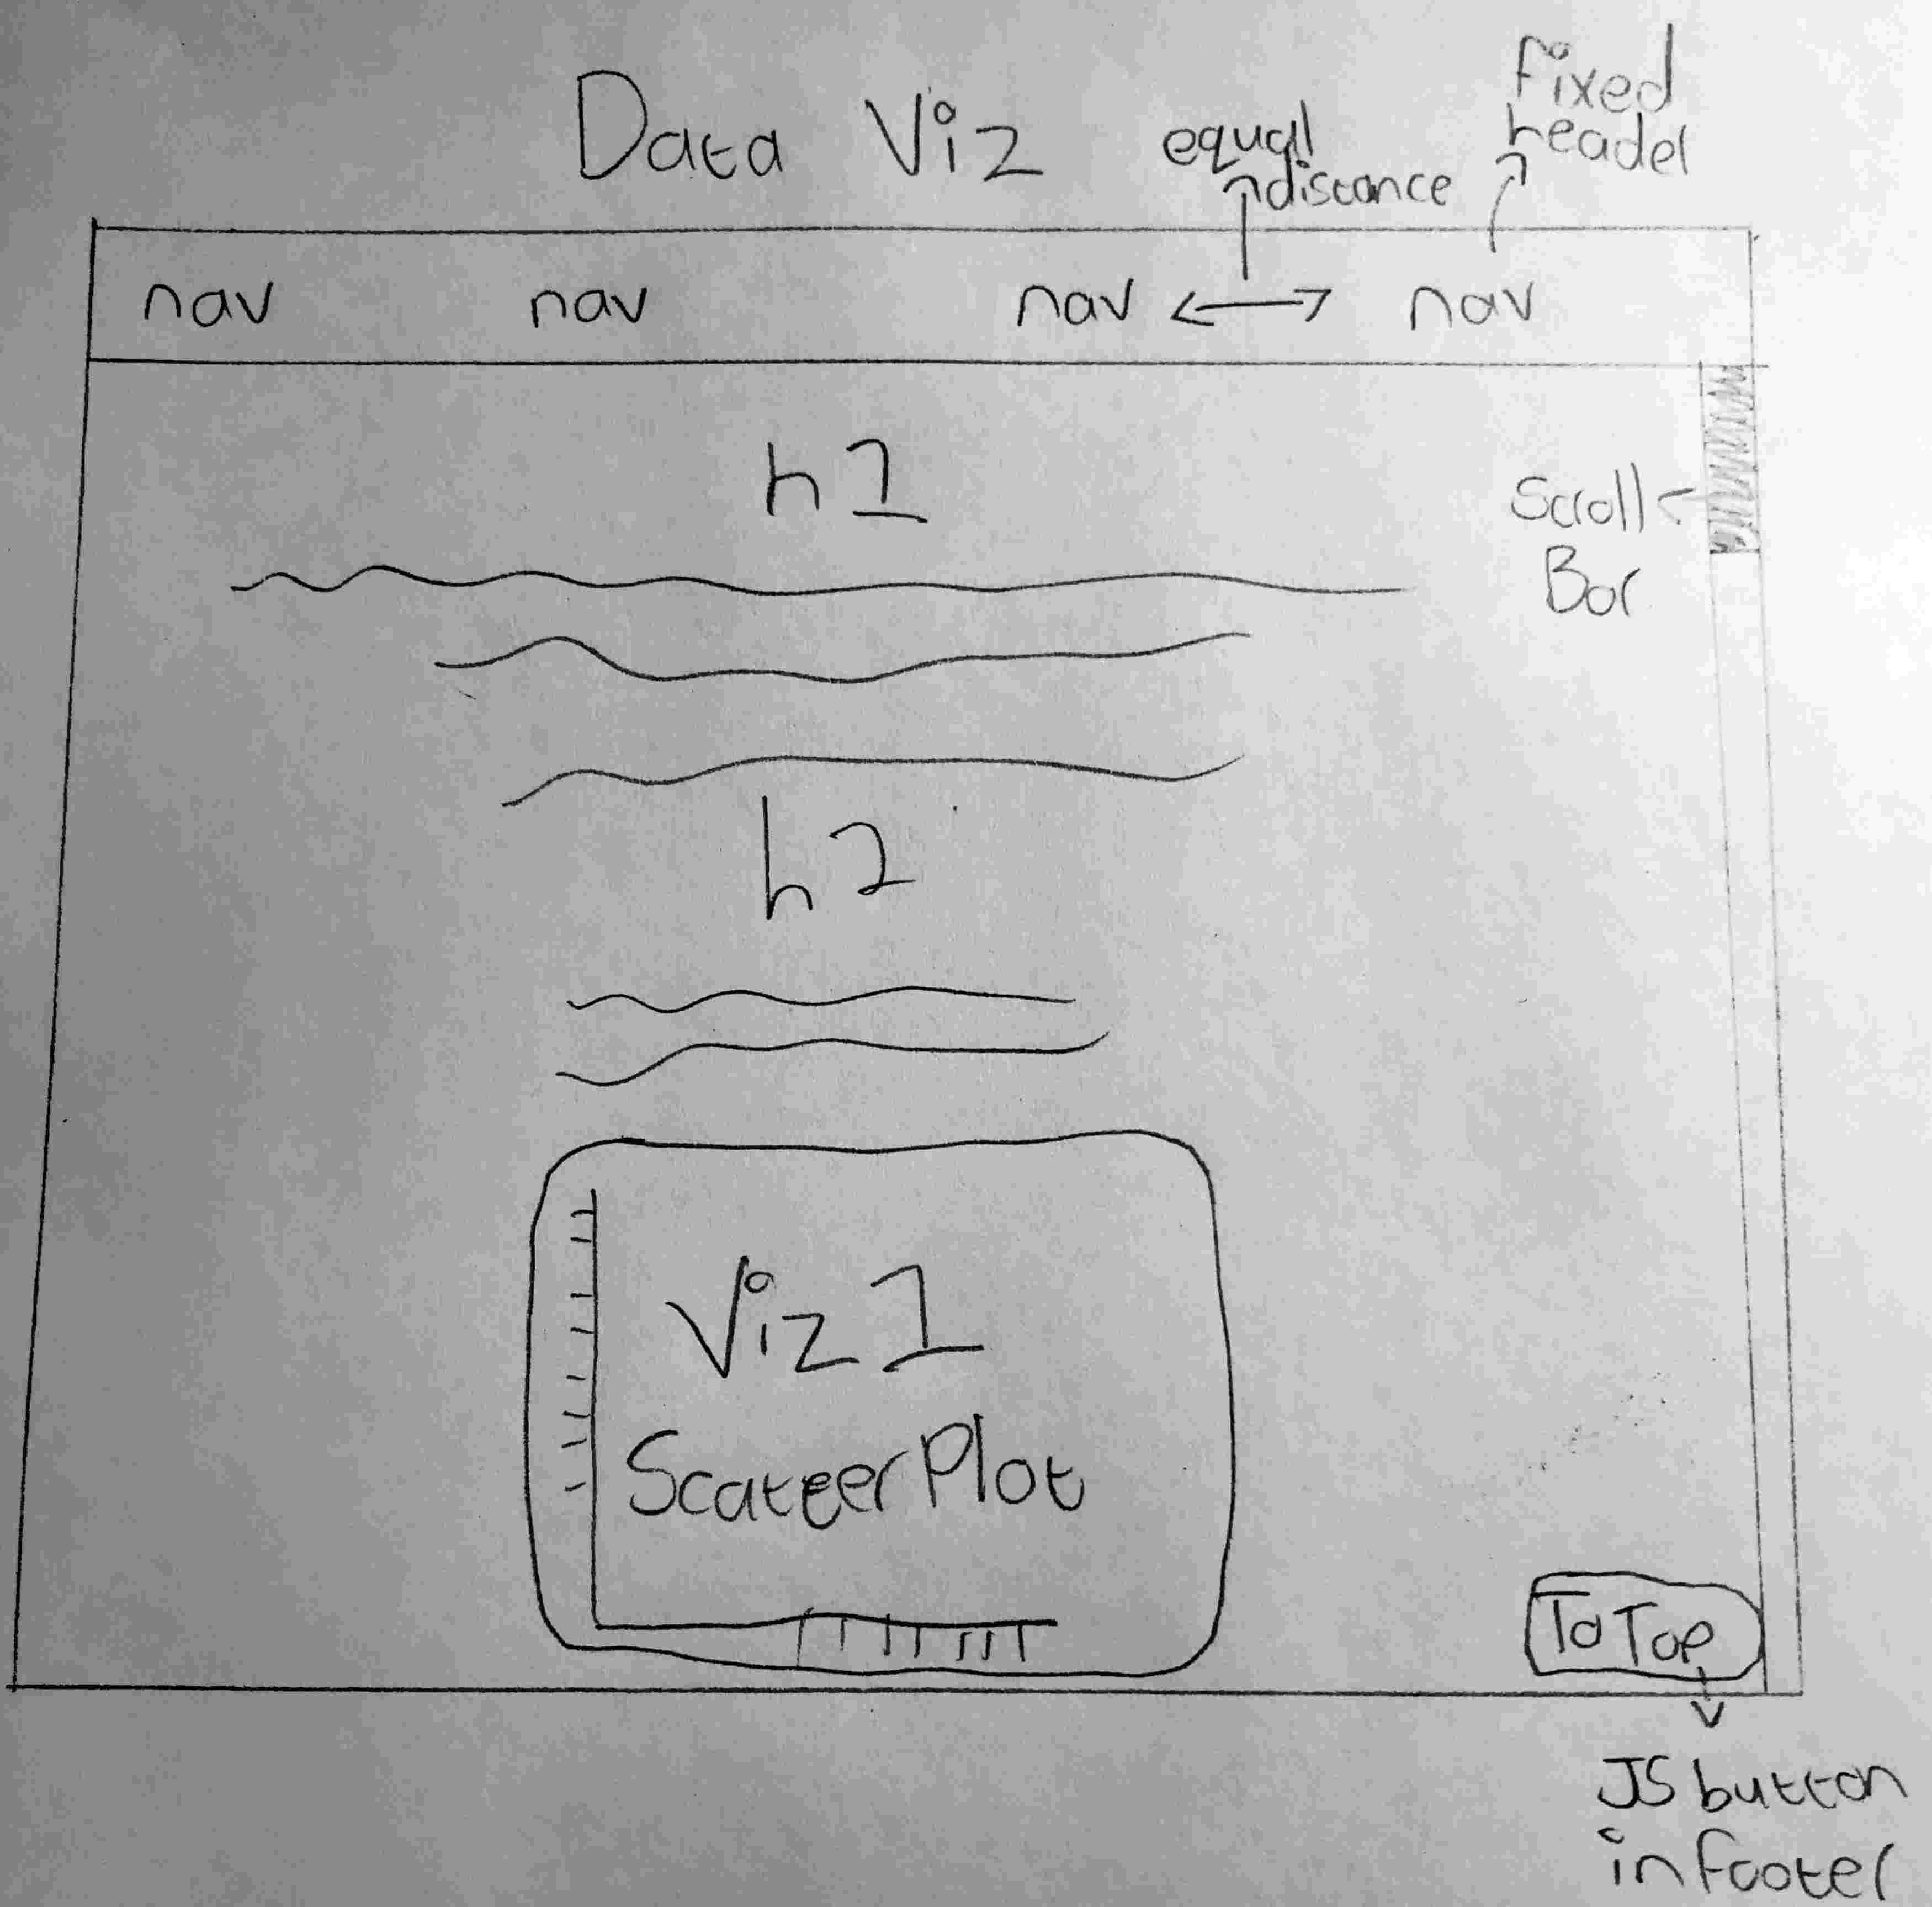 Data Viz
equal
distance
fixed
header
nav nav nav nav
h1
Scroll
Bar
h2
Viz 1
Scatter Plot
To Top
JS button
in footer